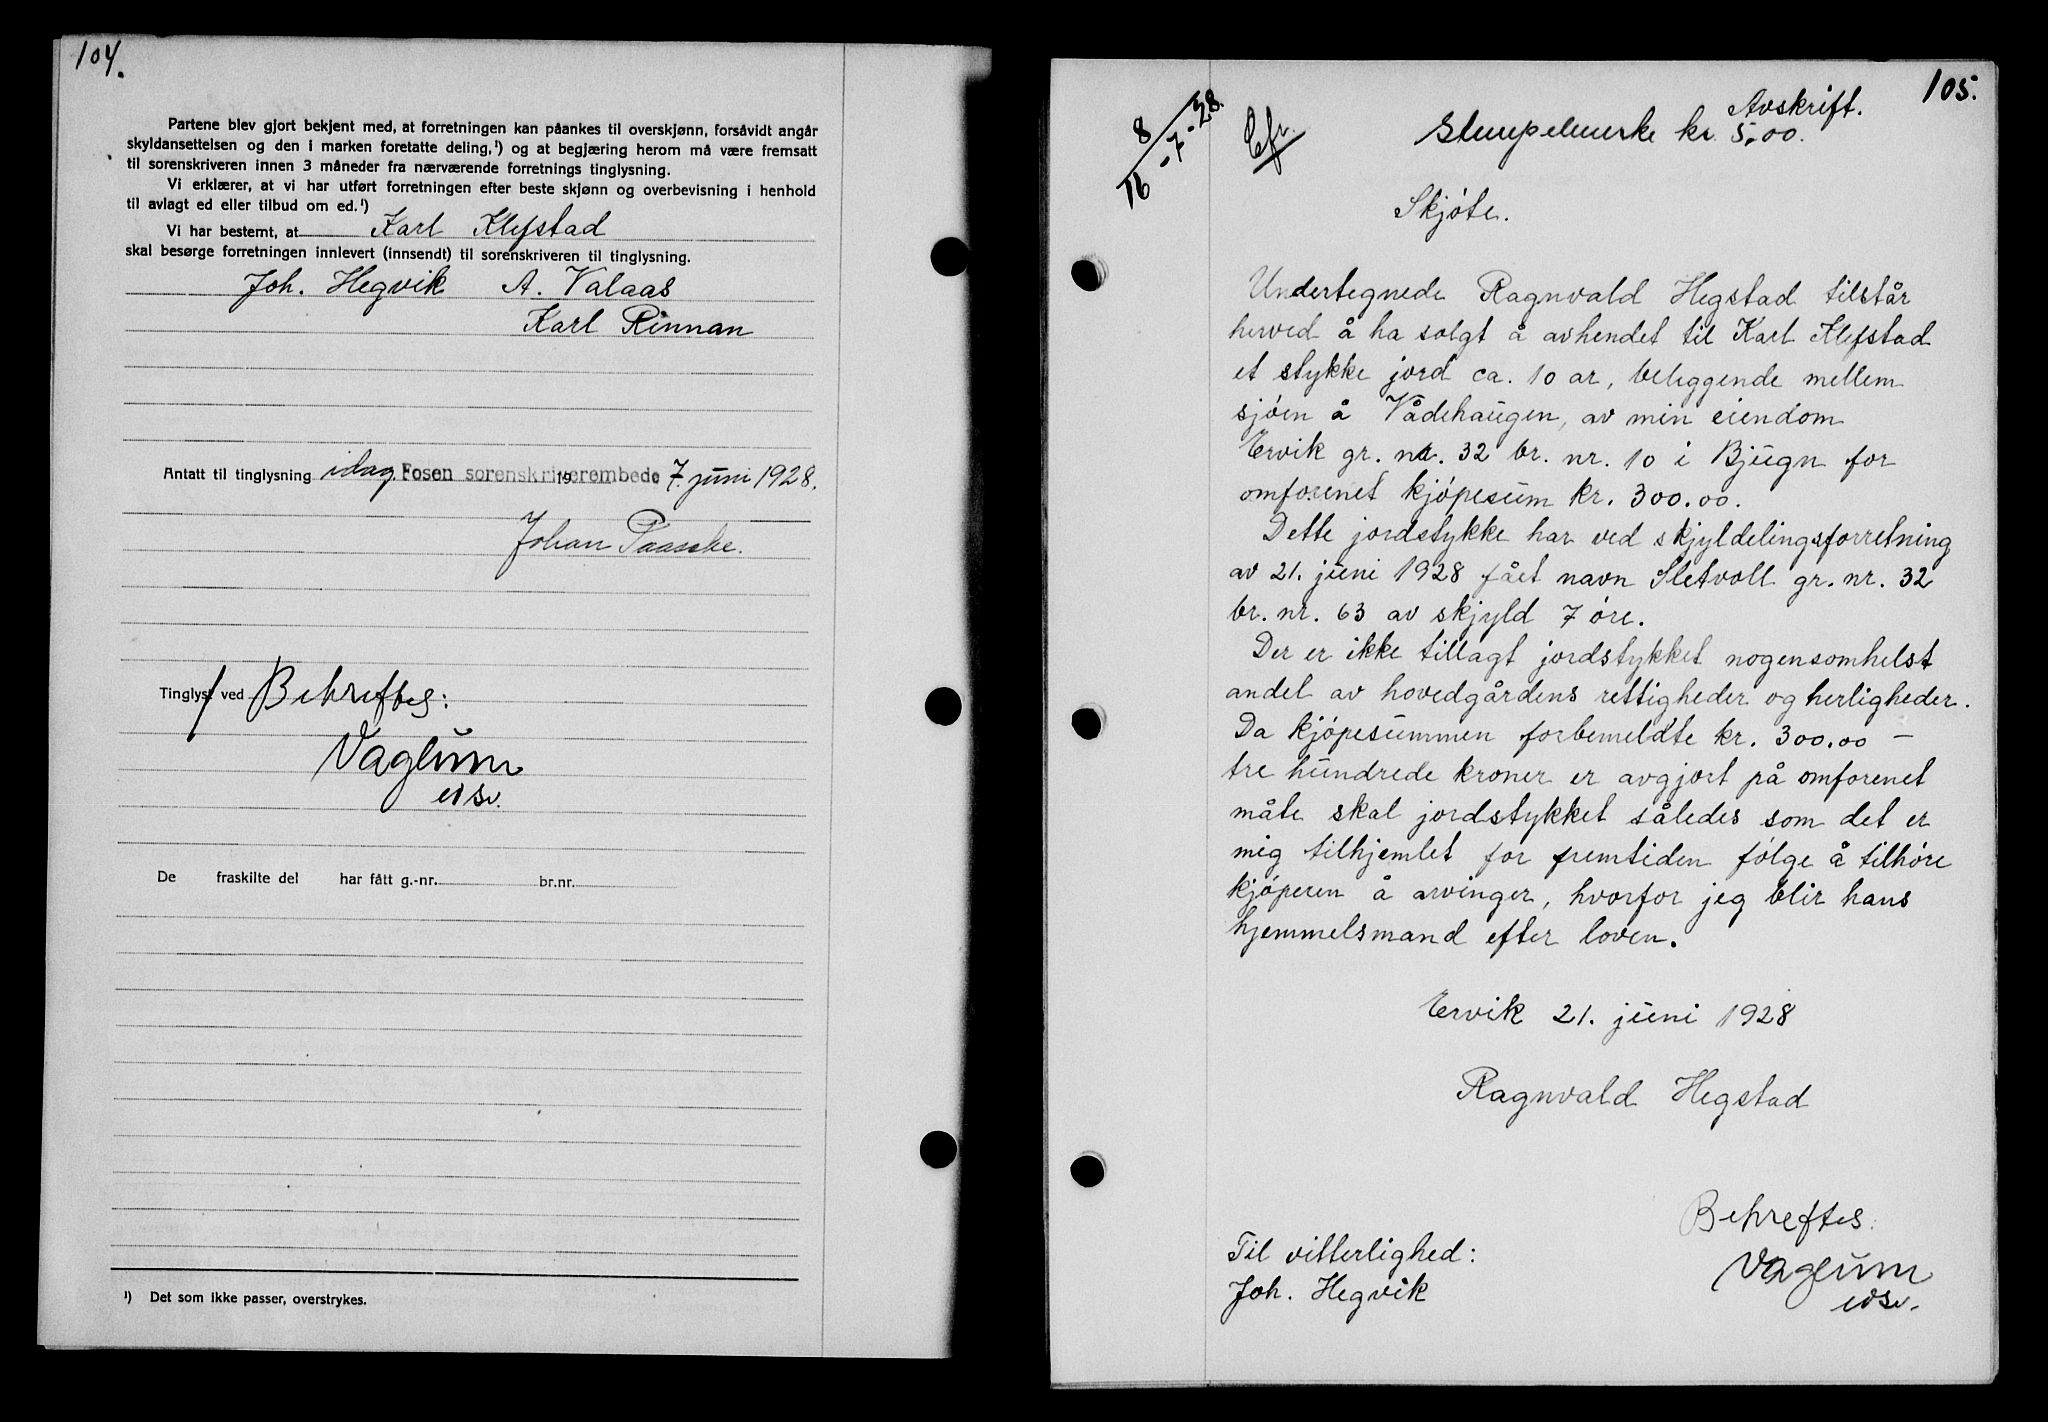 104.
Partene blev gjort bekjent med, at forretningen kan påankes til overskjønn, forsåvidt angår
skyldansettelsen og den i marken foretatte deling,¹) og at begjæring herom må være fremsatt
til sorenskriveren innen 3 måneder fra nærværende forretnings tinglysning.
Vi erklærer, at vi har utført forretningen efter beste skjønn og overbevisning i henhold
til avlagt ed eller tilbud om ed.¹)
Vi har bestemt, at Karl Klefstad
skal besørge forretningen innlevert (innsendt) til sorenskriveren til tinglysning.
Joh. Hegvik A. Valaas
Karl Rinnan
Antatt til tinglysning idag. Fosen sorenskriverembede 19 7. juni 1928.
Johan Paasche.
Tinglyst ved Bekreftes:
Vaglum
edsv.
De fraskilte del har fått g.-nr. br.nr.
¹) Det som ikke passer, overstrykes.
105.
8/16 -7-28.
Efr.
Avskrift.
Stempelmerke kr. 5.00.
Skjøte.
Undertegnede Ragnvald Hegstad tilstår
herved å ha solgt å avhendet til Karl Klefstad
et stykke jord ca. 10 ar, beliggende mellem
sjøen å Vådehaugen, av min eiendom
Ervik gr. nr. 32 br. nr. 10 i Bjugn for
omforenet kjøpesum kr. 300.00.
Dette jordstykke har ved skjyldelingsforretning
av 21. juni 1928 fået navn Sletvoll gr. nr. 32
br. nr. 63 av skjyld 7 øre.
Der er ikke tillagt jordstykket nogensomhelst
andel av hovedgårdens rettigheder og herligheder.
Da kjøpesummen forbemeldte kr. 300.00 –
tre hundrede kroner er avgjort på omforenet
måte skal jordstykket således som det er
mig tilhjemlet for fremtiden følge å tilhøre
kjøperen å arvinger, hvorfor jeg blir hans
hjemmelsmand efter loven.
Ervik 21. juni 1928
Ragnvald Hegstad
Bekreftes:
Vaglum
edsv.
Til vitterlighed:
Joh. Hegvik